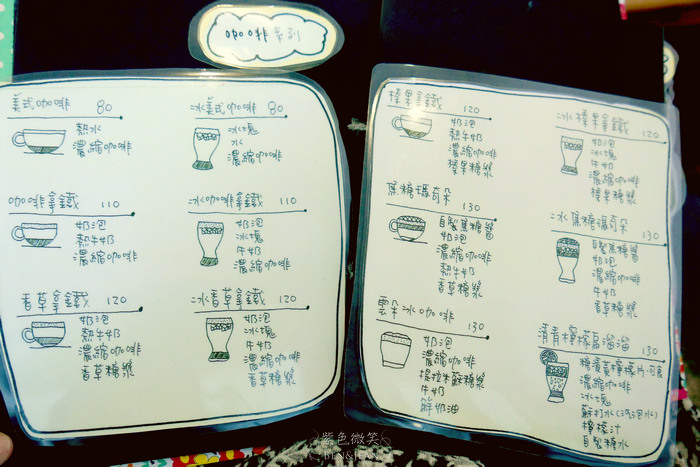 咖啡系列
美式咖啡 80
熱水
濃縮咖啡
冰美式咖啡 80
冰塊
水
濃縮咖啡
咖啡拿鐵 110
奶泡
熱牛奶
濃縮咖啡
冰咖啡拿鐵 110
奶泡
冰塊
牛奶
濃縮咖啡
香草拿鐵 120
奶泡
熱牛奶
濃縮咖啡
香草糖漿
冰香草拿鐵 120
奶泡
冰塊
牛奶
濃縮咖啡
香草糖漿
榛果拿鐵 120
奶泡
熱牛奶
濃縮咖啡
榛果糖漿
冰榛果拿鐵 120
奶泡
冰塊
牛奶
濃縮咖啡
榛果糖漿
焦糖瑪奇朵 130
自製焦糖醬
奶泡
濃縮咖啡
熱牛奶
香草糖漿
冰焦糖瑪奇朵 130
自製焦糖醬
奶泡
濃縮咖啡
冰塊
牛奶
香草糖漿
雲朵冰咖啡 130
奶泡
濃縮咖啡
提拉米蘇糖漿
牛奶
鮮奶油
清青檸檬卡溜溜 130
糖漬黃檸檬片
濃縮咖啡
冰塊
蘇打水(氣泡水)
檸檬汁
自製糖水
紫色微笑
BEN&JEAN